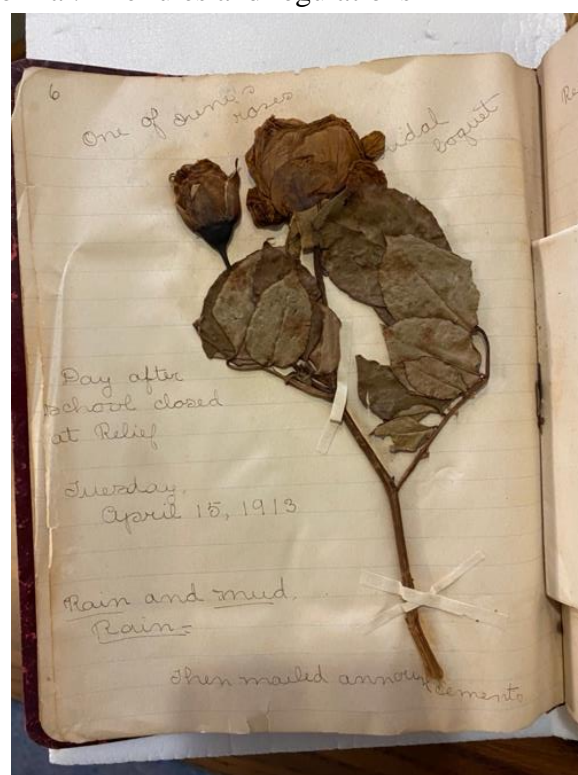 6
One of
roses
boquet
Day after
school closed
at Relief
Tuesday,
April 15, 1913
Rain and mud.
Rain-
Then mailed announcements
Re